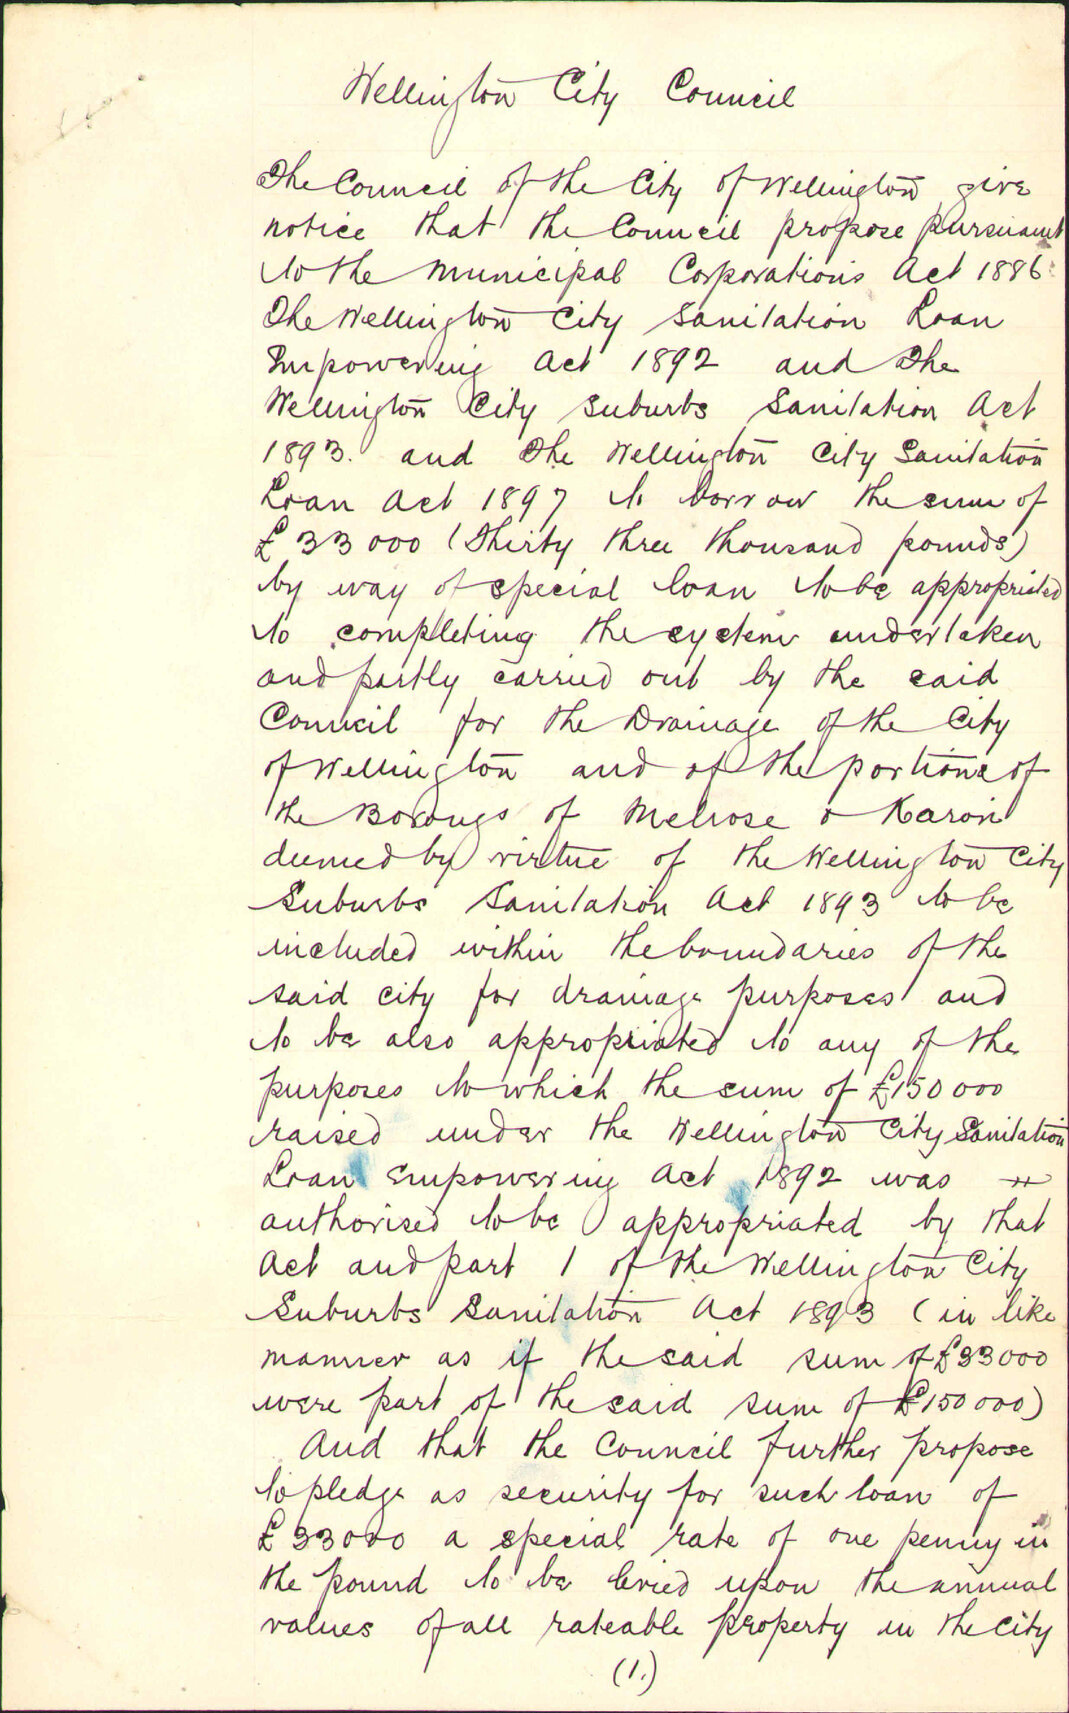 Wellington City Council
The Council of the City of Wellington give
notice that the Council propose pursuant
to the Municipal Corporations Act 1886
The Wellington City Sanitation Loan
Empowering Act 1892 and The
Wellington City Suburbs Sanitation Act
1893. and The Wellington City Sanitation
Loan Act 1897 to borrow the sum of
£33000 (Thirty three thousand pounds)
by way of special loan to be appropriated
to completing the system undertaken
and partly carried out by the said
Council for the Drainage of the City
of Wellington and of the portions of
the Borougs of Melrose & Karori
deemed by virtue of the Wellington City
Suburbs Sanitation Act 1893 to be
included within the boundaries of the
said city for drainage purposes and
to be also appropriated to any of the
purposes to which the sum of £150000
raised under the Wellington City Sanitation
Loan Empowering Act 1892 was
authorised to be appropriated by that
Act and part 1 of the Wellington City
Suburbs Sanitation Act 1893 (in like
manner as if the said sum of £33000
were part of the said sum of £150000)
And that the Council further propose
to pledge as security for such loan of
£33000 a special rate of one penny in
the pound to be levied upon the annual
values of all rateable property in the city
(1.)